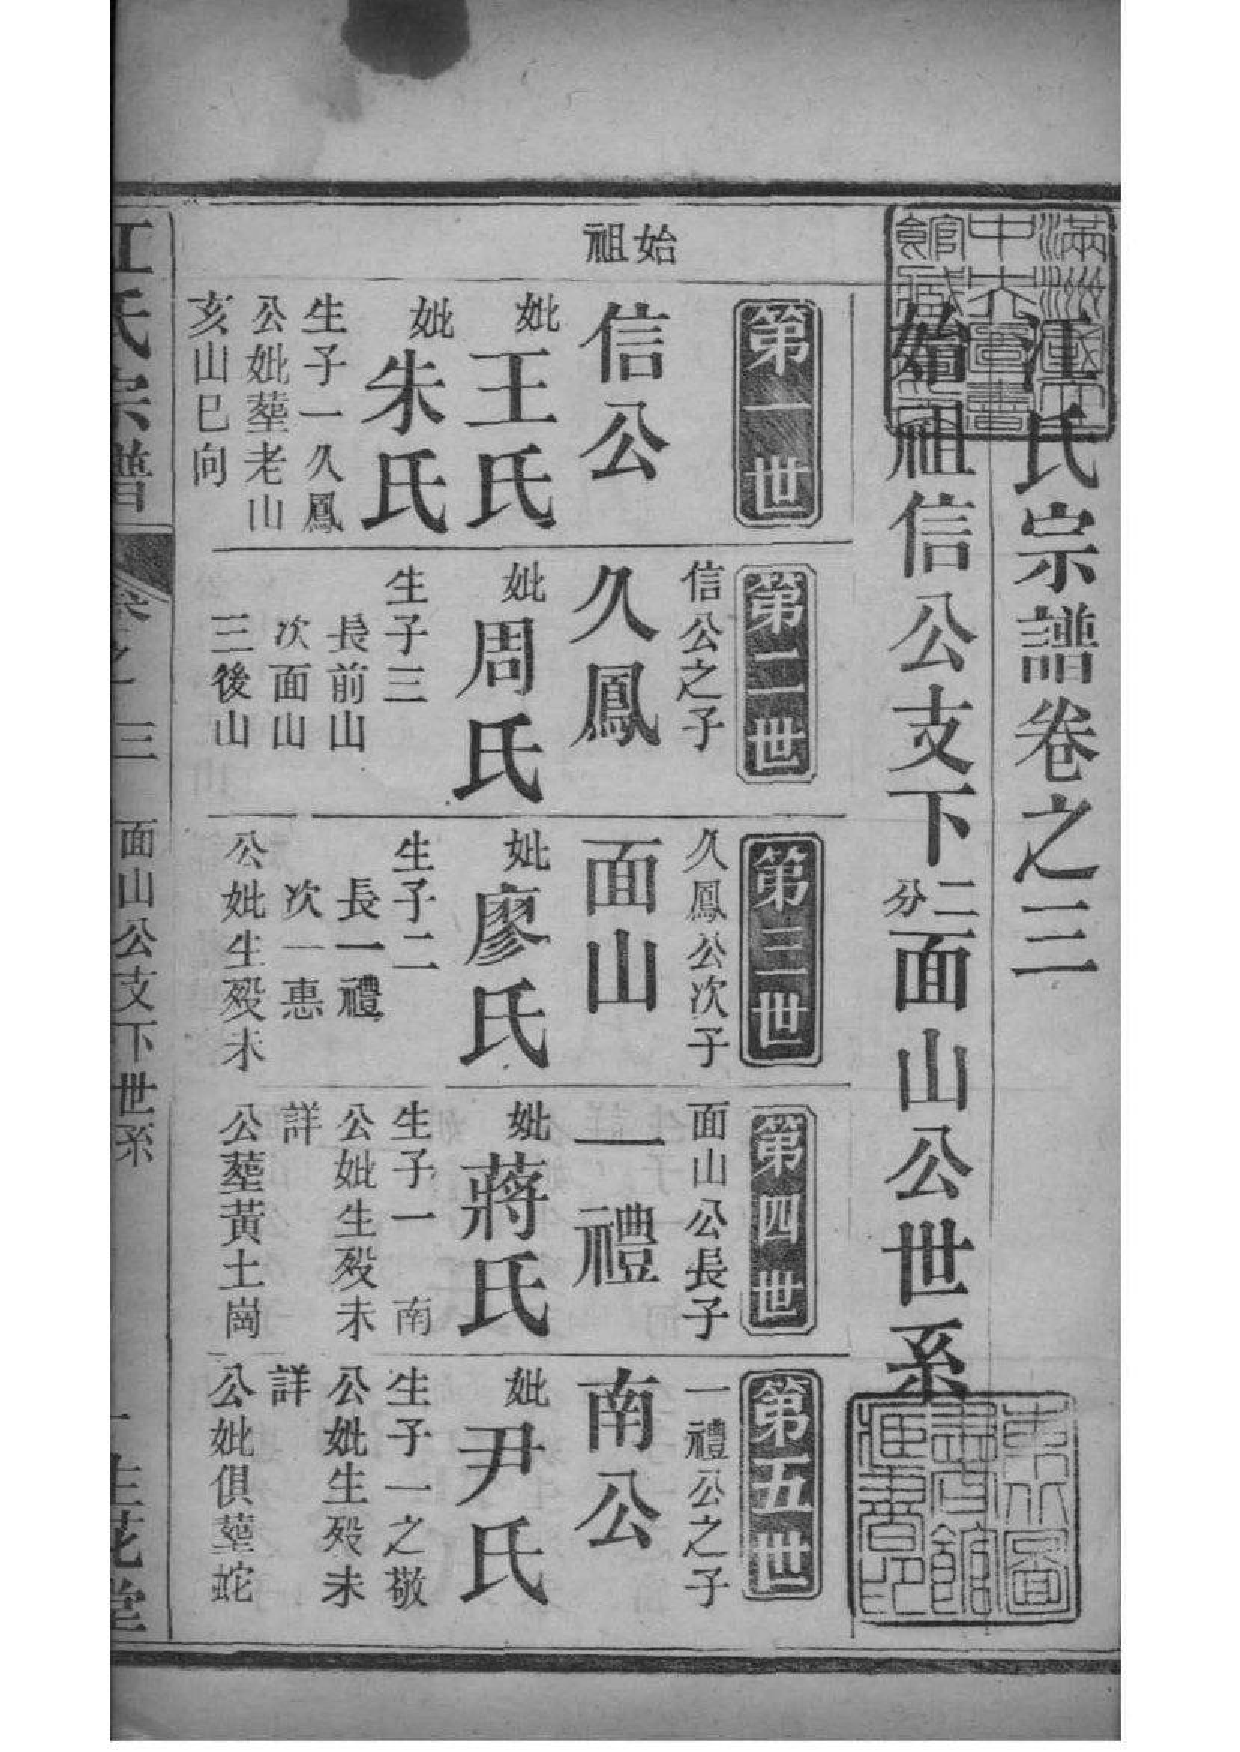 江氏宗譜卷之三
始祖信公支下二分面山公世系
始祖
第一世
信公
妣王氏
妣朱氏
生子一久鳳
公妣塟老山
亥山巳向
第二世
信公之子
久鳳
妣周氏
生子三
長前山
次面山
三後山
第三世
久鳳公次子
面山
妣廖氏
生子二
長一禮
次一惠
公妣生殁未
第四世
面山公長子
一禮
妣蔣氏
生子一 南
公妣生殁未
詳
公塟黃土崗
第五世
一禮公之子
南公
妣尹氏
生子一之敬
公妣生殁未
詳
公妣俱塟蛇
江氏宗譜
卷之三
面山公支下世系
一
生花堂